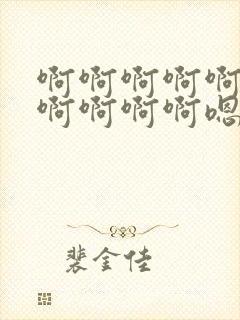 啊啊啊啊啊
啊啊啊啊嗯
裴金佳